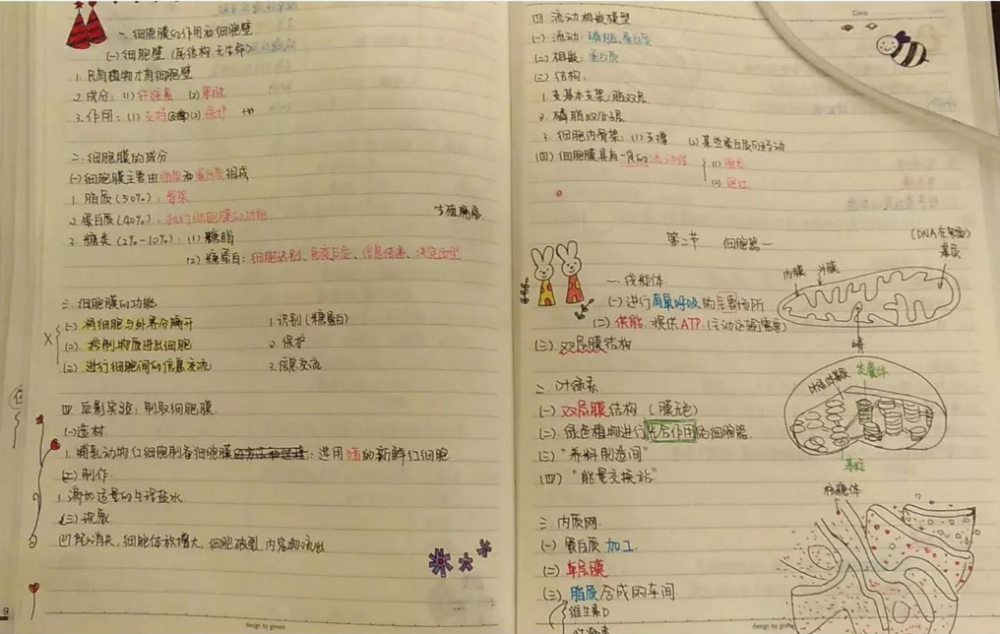 一、细胞膜的作用和细胞壁
(一) 细胞壁 (
1. 只有植物才有细胞壁
2. 成分: (1) 纤维素 (2) 果胶
3. 作用: (1) 支持 (2) 保护
二. 细胞膜的成分
(一) 细胞膜主要由脂质和蛋白质组成
1. 脂质 (50%): 骨架
2. 蛋白质 (40%): 执行细胞膜的功能
3. 糖类 (2%-10%): (1) 糖脂
(2) 糖蛋白: 细胞识别、免疫反应、信息传递、决定血型
三. 细胞膜的功能
(一) 将细胞与外界分隔开
(二) 控制物质进出细胞
(三) 进行细胞间的信息交流
1. 识别 (糖蛋白)
2. 保护
3. 信息交流
四. 实验: 制取细胞膜
(一) 选材
1. 哺乳动物红细胞制备细胞膜 选用 的新鲜红细胞
(二) 制作
1. 滴加适量的生理盐水
(三) 现象
凹陷消失, 细胞体积增大, 细胞破裂, 内容物流出
9
design by gimein
Date
四. 流动相嵌模型
(一) 流动: 磷脂、蛋白质
(二) 相嵌: 蛋白质
(三) 结构:
1. 基本支架: 脂双层
2. 磷脂双分子层
3. 细胞内骨架: (1) 支撑 (2) 某些蛋白质的移动
(四) 细胞膜具有一定的流动性
(1)
(2)
第二节 细胞器一
(DNA在里面)
基质
内膜 外膜
嵴
一. 线粒体
(一) 进行有氧呼吸的主要场所
(二) 供能. 提供ATP (主动运输需要)
(三) 双层膜结构
二. 叶绿素
(一) 双层膜结构 (膜无色)
(二). 绿色植物进行光合作用的细胞器
(三) "养料制造间"
(四) "能量交换站"
叶绿体基质
类囊体
基粒
核糖体
三. 内质网
(一) 蛋白质加工.
(二) 单层膜
(三) 脂质合成的车间
维生素D
design by gimein